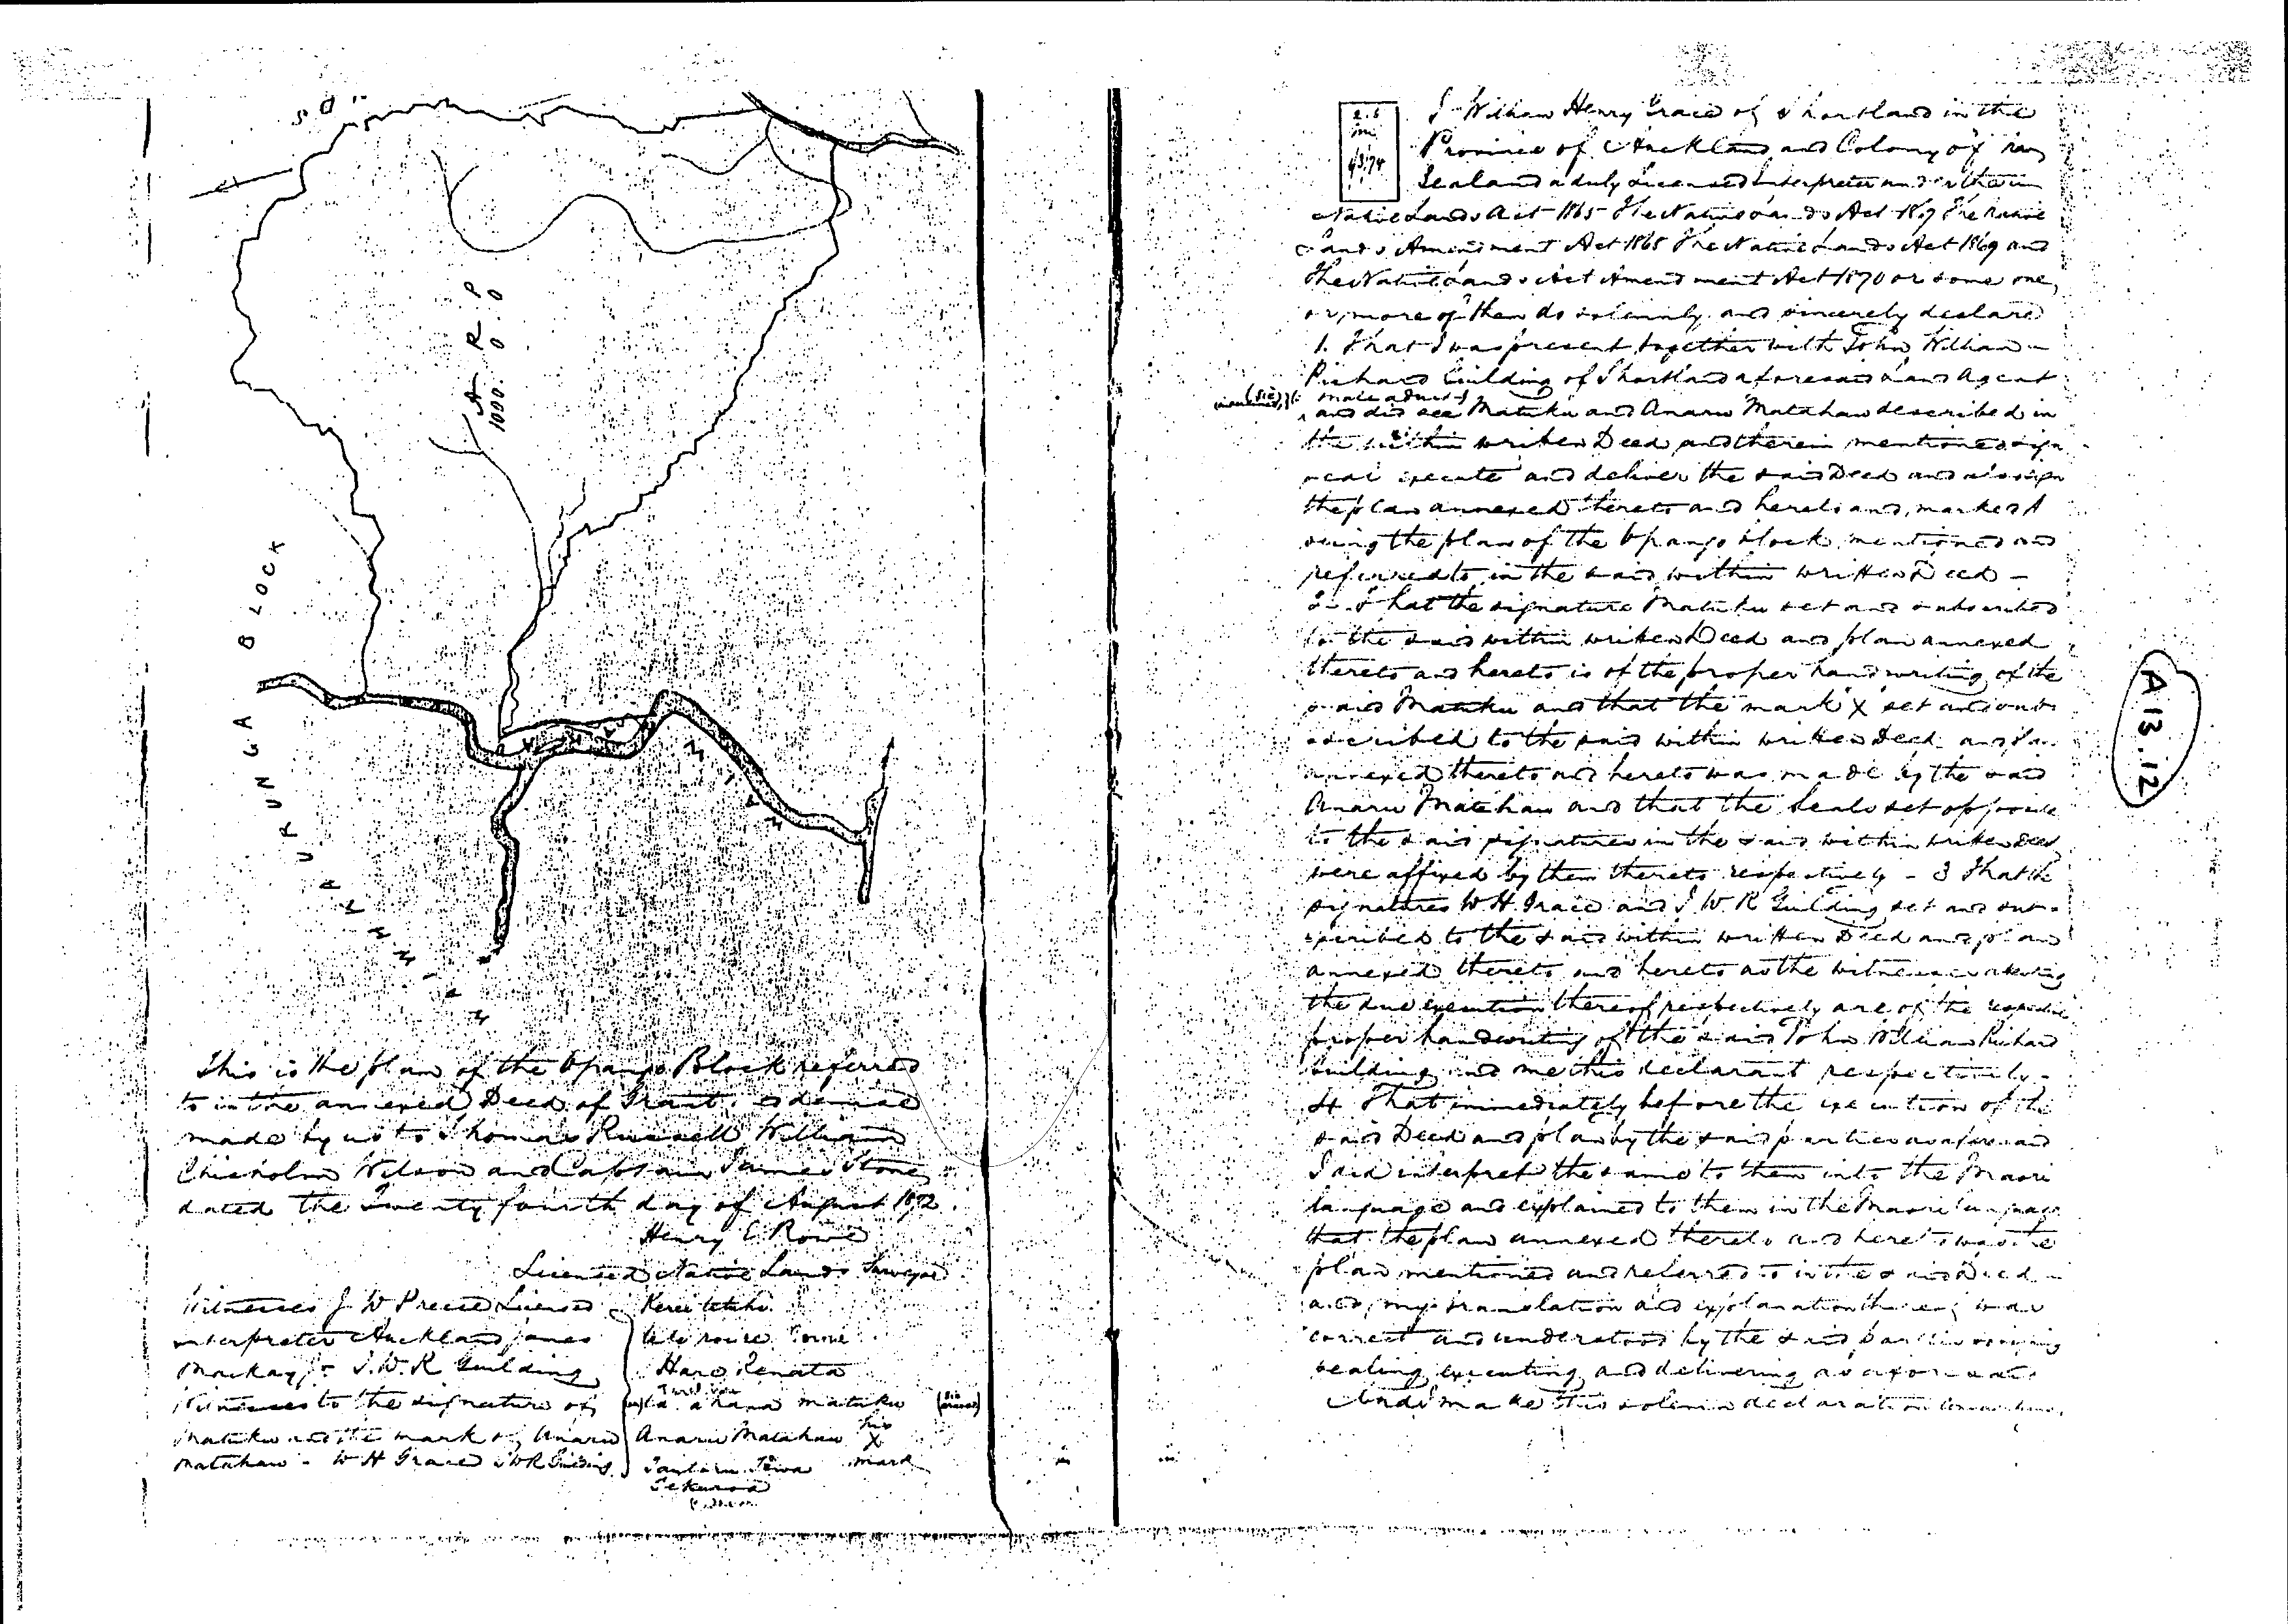 A R P
1000. 0 0
BLOCK
This is the plan of the Opango Block referred
to in the annexed Deed of Grant demise
made by us to Thomas Russell William
Chisholm Wilson and Captain James Stone
dated the Twenty fourth day of August 1872.
Henry E Rowe
Licensed Native Lands Surveyor
Witnesses J W Preece Licensed
interpreter Auckland James
Mackay jr J. W. R Guilding
Witnesses to the signature of
Matuku and the mark of Anaru
Matahau - W H Grace J W R Guilding
Haro Renata
matuku
Anaru Matahau his
X
mark
I William Henry Grace of Shortland in the
Province of Auckland and Colony of New
Zealand a duly Licensed Interpreter under the
Native Lands Act 1865 The Native Lands Act 1867 The Native
Lands Amendment Act 1868 The Native Lands Act 1869 and
The Native Lands Act Amendment Act 1870 or some one
or more of them do solemnly and sincerely declare
1. That I was present together with John William
Richard Guilding of Shortland aforesaid Land Agent
male adult
and did see Matuku and Anaru Matahau described in
the within written Deed and therein mentioned sign
seal execute and deliver the said Deed and also sign
the plan annexed thereto and hereto and marked A
being the plan of the Opango block mentioned and
referred to in the said within written Deed -
2. That the signature Matuku set and subscribed
to the said within written Deed and plan annexed
thereto and hereto is of the proper handwriting of the
said Matuku and that the mark X set and sub
scribed to the said within written Deed and plan
annexed thereto and hereto was made by the said
Anaru Matahau and that the Seals set opposite
to the said signatures in the said within written Deed
were affixed by them thereto respectively - 3 That the
signatures W H Grace and J W R Guilding set and sub-
scribed to the said within written Deed and plan
annexed thereto and hereto as the witnesses attesting
the due execution thereof respectively are of the respective
proper handwriting of the said John William Richard
Guilding and me this declarant respectively -
4 That immediately before the execution of the
said Deed and plan by the said parties as aforesaid
I did interpret the same to them into the Maori
language and explained to them in the Maori language
that the plan annexed thereto and hereto was the
plan mentioned and referred to in the said Deed -
and my translation and explanation thereof was
correct and understood by the said parties signing
sealing executing and delivering as aforesaid
And I make this solemn declaration
A 13.12